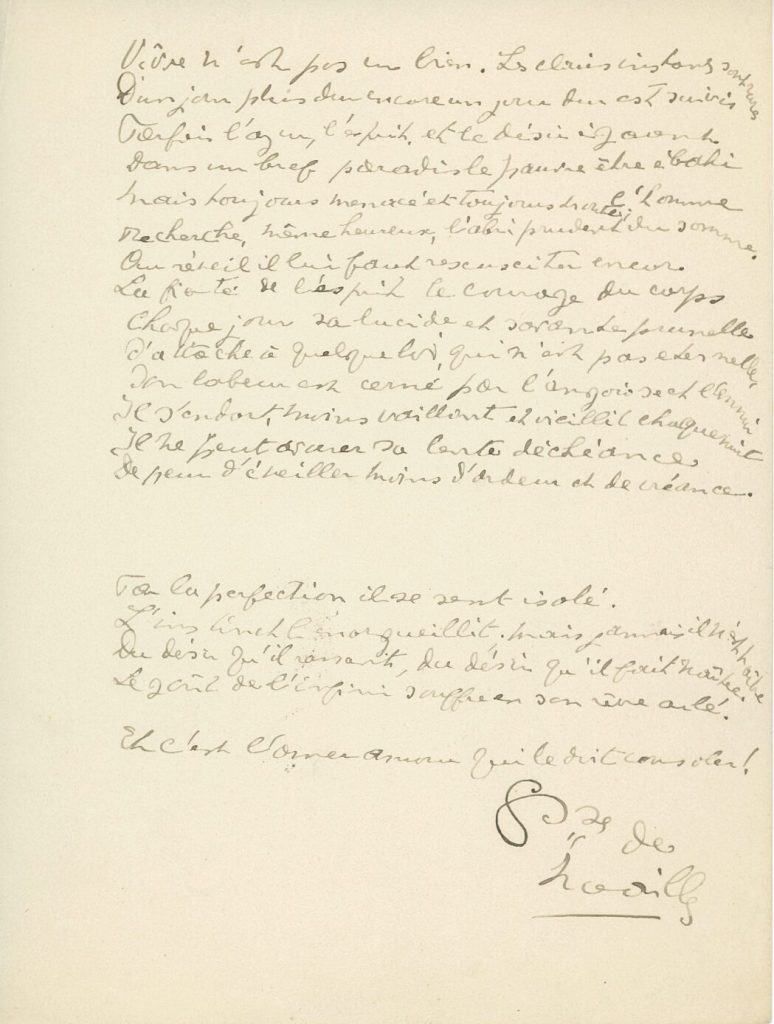 Vivre n'est pas un bien. Les clairs instants sont rares
D'un jour plus dur encore un jour dur est suivi
Parfois l'azur, l'esprit, et le désir égarent
Dans un bref paradis le pauvre être ébahi
Mais toujours menacé et toujours l'homme
Recherche, même heureux, l'abri prudent du somme.
Au réveil il lui faut ressusciter encor
La fierté de l'esprit le courage du corps
Chaque jour sa lucide et savante prunelle
S'attache à quelque loi, qui n'est pas éternelle,
Son labeur est cerné par l'angoisse et l'ennui
Il s'endort, moins vaillant et vieillit chaque nuit
Il ne peut avouer sa lente déchéance
De peur d'éveiller moins d'ardeur et de créance.
Par la perfection il se sent isolé.
L'instinct l'énorgueillit. mais jamais il n'est maître
Du désir qu'il ressent, du désir qu'il fait naître.
Le goût de l'infini souffre en son rêve ailé.
Et c'est l'amer amour qui le doit consoler!
Ctesse de
Noailles